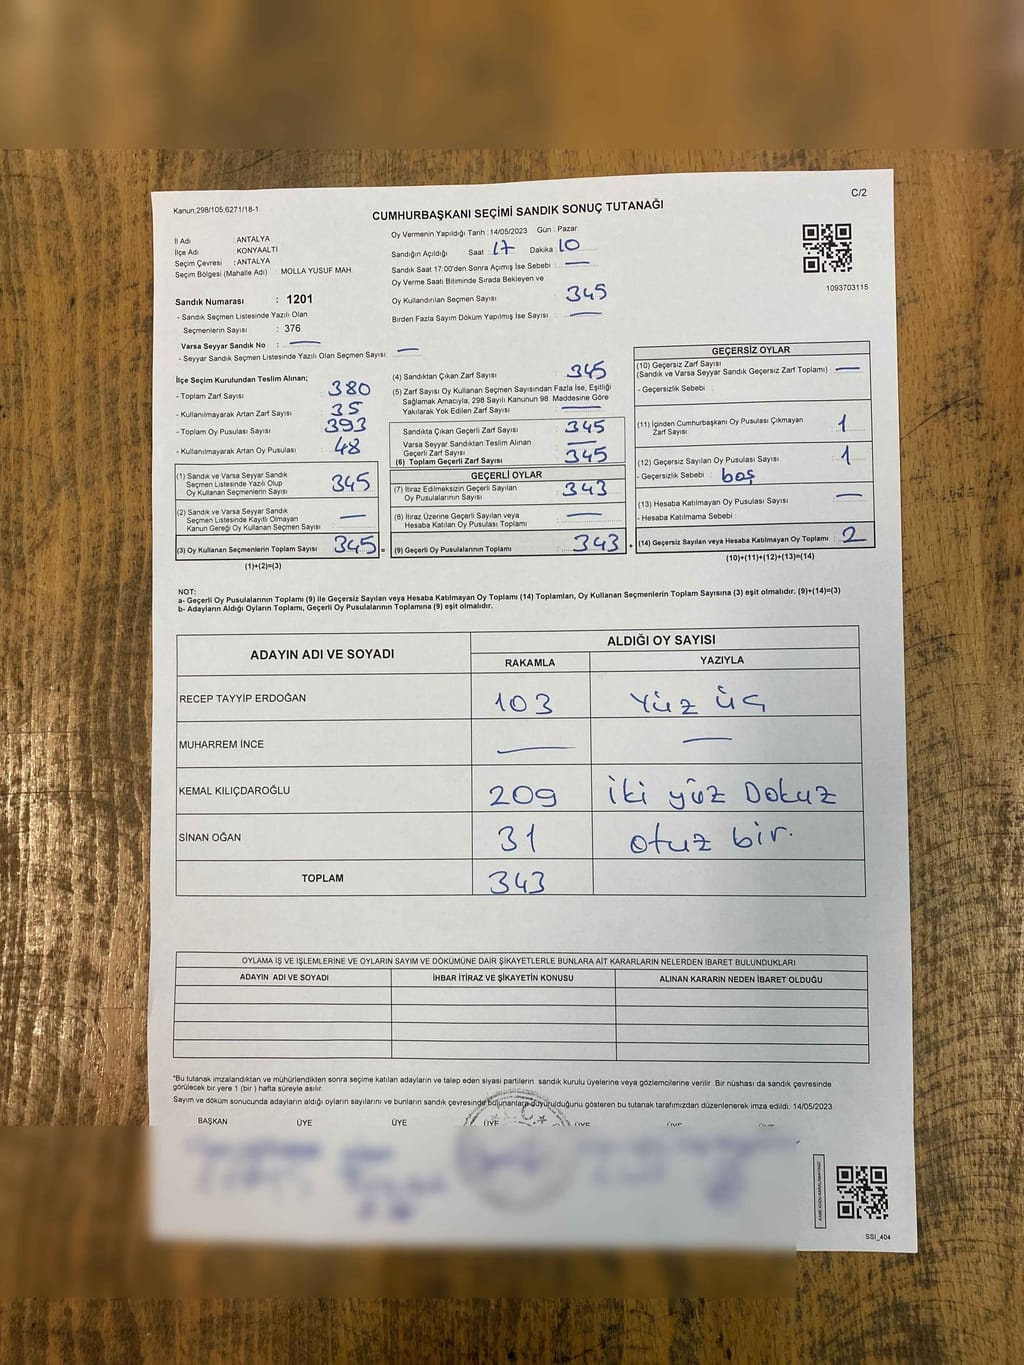 Kanun,298/105,6271/18-1
C/2
CUMHURBAŞKANI SEÇİMİ SANDIK SONUÇ TUTANAĞI
İl Adı : ANTALYA
İlçe Adı : KONYAALTI
Seçim Çevresi : ANTALYA
Seçim Bölgesi (Mahalle Adı) MOLLA YUSUF MAH
Sandık Numarası : 1201
- Sandık Seçmen Listesinde Yazılı Olan
Seçmenlerin Sayısı : 376
Varsa Seyyar Sandık No : —
- Seyyar Sandık Seçmen Listesinde Yazılı Olan Seçmen Sayısı: —
Oy Vermenin Yapıldığı Tarih : 14/05/2023 Gün : Pazar
Sandığın Açıldığı Saat : 17 Dakika : 10
Sandık Saat 17:00'den Sonra Açımış İse Sebebi : —
Oy Verme Saati Bitiminde Sırada Bekleyen ve
Oy Kullandırılan Seçmen Sayısı : 345
Birden Fazla Sayım Döküm Yapılmış İse Sayısı : —
1093703115
İlçe Seçim Kurulundan Teslim Alınan;
- Toplam Zarf Sayısı : 380
- Kullanılmayarak Artan Zarf Sayısı : 35
- Toplam Oy Pusulası Sayısı : 393
- Kullanılmayarak Artan Oy Pusulası : 48
(1) Sandık ve Varsa Seyyar Sandık
Seçmen Listesinde Yazılı Olup
Oy Kullanan Seçmenlerin Sayısı : 345
(2) Sandık ve Varsa Seyyar Sandık
Seçmen Listesinde Kayıtlı Olmayan
Kanun Gereği Oy Kullanan Seçmen Sayısı : —
(3) Oy Kullanan Seçmenlerin Toplam Sayısı : 345 =
(1)+(2)=(3)
(4) Sandıktan Çıkan Zarf Sayısı : 345
(5) Zarf Sayısı Oy Kullanan Seçmen Sayısından Fazla İse, Eşitliği
Sağlamak Amacıyla, 298 Sayılı Kanunun 98. Maddesine Göre
Yakılarak Yok Edilen Zarf Sayısı : —
Sandıkta Çıkan Geçerli Zarf Sayısı : 345
Varsa Seyyar Sandıktan Teslim Alınan
Geçerli Zarf Sayısı : —
(6) Toplam Geçerli Zarf Sayısı : 345
GEÇERLİ OYLAR
(7) İtiraz Edilmeksizin Geçerli Sayılan
Oy Pusulalarının Sayısı : 343
(8) İtiraz Üzerine Geçerli Sayılan veya
Hesaba Katılan Oy Pusulası Toplamı : —
(9) Geçerli Oy Pusulalarının Toplamı : 343 +
GEÇERSİZ OYLAR
(10) Geçersiz Zarf Sayısı
(Sandık ve Varsa Seyyar Sandık Geçersiz Zarf Toplamı) : —
- Geçersizlik Sebebi :
(11) İçinden Cumhurbaşkanı Oy Pusulası Çıkmayan
Zarf Sayısı : 1
(12) Geçersiz Sayılan Oy Pusulası Sayısı : 1
- Geçersizlik Sebebi : boş
(13) Hesaba Katılmayan Oy Pusulası Sayısı : —
- Hesaba Katılmama Sebebi :
(14) Geçersiz Sayılan veya Hesaba Katılmayan Oy Toplamı : 2
(10)+(11)+(12)+(13)=(14)
NOT:
a- Geçerli Oy Pusulalarının Toplamı (9) ile Geçersiz Sayılan veya Hesaba Katılmayan Oy Toplamı (14) Toplamları, Oy Kullanan Seçmenlerin Toplam Sayısına (3) eşit olmalıdır. (9)+(14)=(3)
b- Adayların Aldığı Oyların Toplamı, Geçerli Oy Pusulalarının Toplamına (9) eşit olmalıdır.
ADAYIN ADI VE SOYADI ALDIĞI OY SAYISI
RAKAMLA YAZIYLA
RECEP TAYYİP ERDOĞAN 103 Yüz üç
MUHARREM İNCE — —
KEMAL KILIÇDAROĞLU 209 iki yüz Dokuz
SİNAN OĞAN 31 otuz bir.
TOPLAM 343
OYLAMA İŞ VE İŞLEMLERİNE VE OYLARIN SAYIM VE DÖKÜMÜNE DAİR ŞİKAYETLERLE BUNLARA AİT KARARLARIN NELERDEN İBARET BULUNDUKLARI
ADAYIN ADI VE SOYADI İHBAR İTİRAZ VE ŞİKAYETİN KONUSU ALINAN KARARIN NEDEN İBARET OLDUĞU
*Bu tutanak imzalandıktan ve mühürlendikten sonra seçime katılan adayların ve talep eden siyasi partilerin sandık kurulu üyelerine veya gözlemcilerine verilir. Bir nüshası da sandık çevresinde
görülecek bir yere 1 (bir ) hafta süreyle asılır
Sayım ve döküm sonucunda adayların aldığı oyların sayılarını ve bunların sandık çevresinde bulunanlara duyurulduğunu gösteren bu tutanak tarafımızdan düzenlenerek imza edildi. 14/05/2023
BAŞKAN ÜYE ÜYE ÜYE ÜYE ÜYE ÜYE
SSI_404